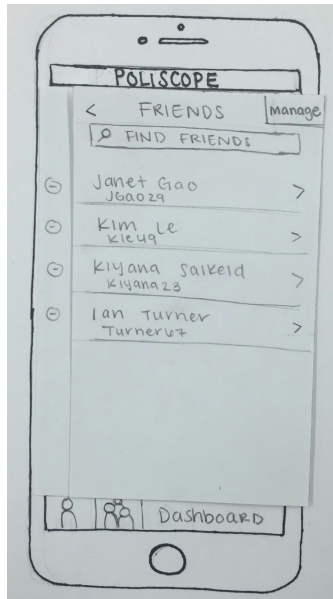 POLISCOPE
< FRIENDS Manage
FIND FRIENDS
Janet Gao >
JGao29
Kim Le >
Kle49
Kiyana Salkeld >
Kiyana23
Ian Turner >
Turner67
Dashboard